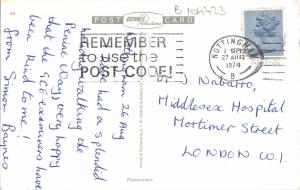 B104423
POST CARD
DENNIS
REMEMBER
to use the
POST CODE!
NOTTINGHAM
27 AUG
1974
B
Nottingham 26 Aug
have had a splendid
holiday walking the
Penine Way; very happy
that the GCE examiners have
been kind to me!
from Simon Baynes
Mr Nabarro,
Middlesex Hospital
Mortimer Street
LONDON W.1.